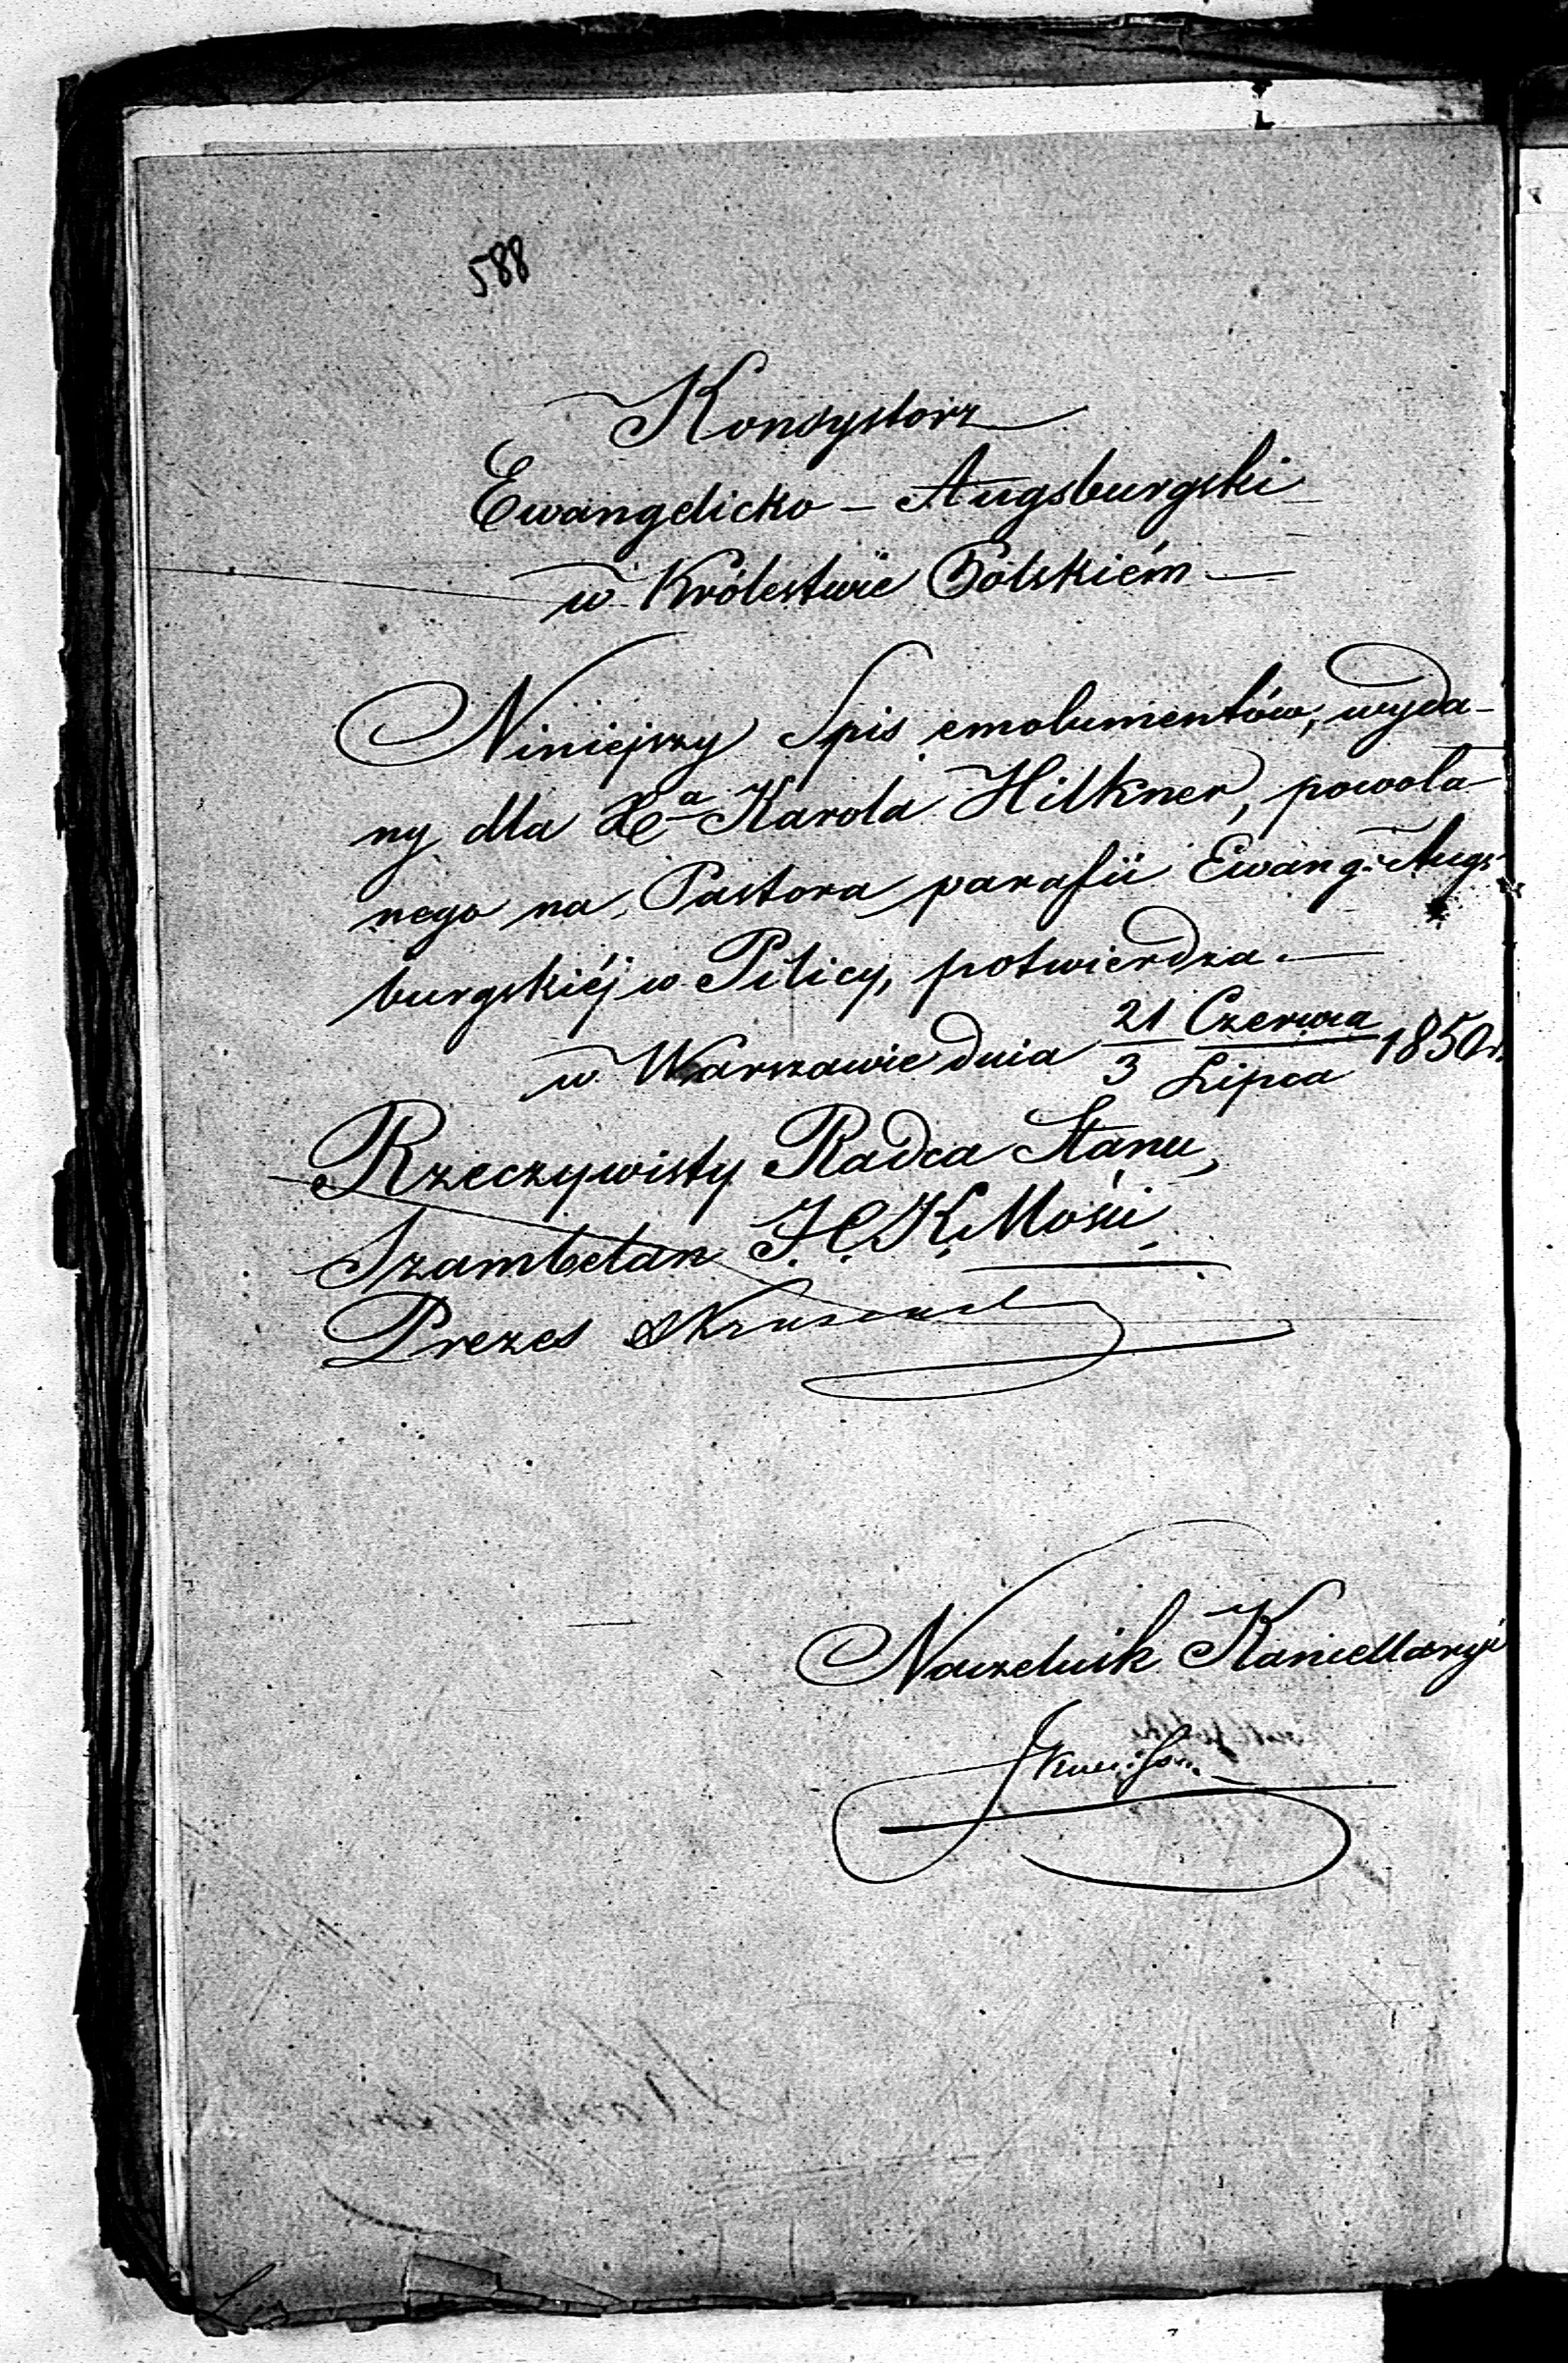 588
Konsystorz
Ewangelicko - Augsburgski
w Królestwie Polskiém
Niniejszy Spis emolumentów, wyda-
ny dla Xa Karola Hilkner, powoła-
nego na Pastora parafii Ewang: Augs-
burgskiéj w Pilicy, potwierdza.
w Warszawie dnia 21 Czerwca 1850 r.
3 Lipca
Rzeczywisty Radca Stanu,
Szambelan J. C. K. Mości
Prezes
Naczelnik Kancellaryi